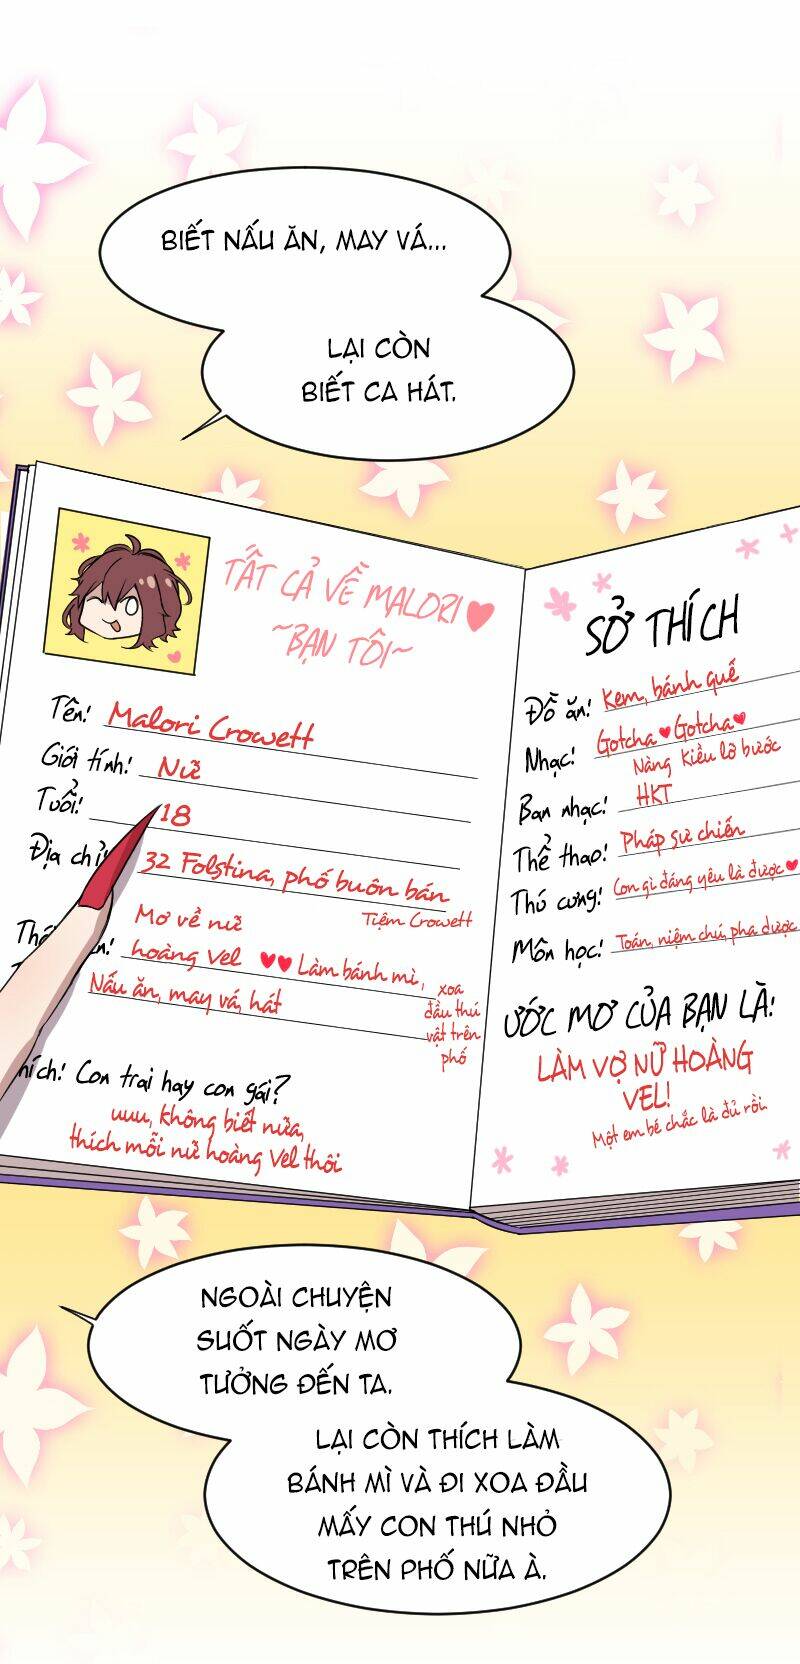 BIẾT NẤU ĂN, MAY VÁ...
LẠI CÒN
BIẾT CA HÁT.
TẤT CẢ VỀ MALORI ♥
~BẠN TÔI~
Tên: Malori Crowett
Giới tính: Nữ
Tuổi: 18
Địa chỉ: 32 Folstina, phố buôn bán
Tiệm Crowett
Mơ về nữ
hoàng Vel ♥♥ Làm bánh mì,
xoa
đầu thú
vật trên
phố
Nấu ăn, may vá, hát
hích: Con trai hay con gái?
uuu, không biết nữa,
thích mỗi nữ hoàng Vel thôi
SỞ THÍCH
Đồ ăn: Kem, bánh quế
Nhạc: Gotcha ♥ Gotcha ♥
Nàng Kiều lỡ bước
Ban nhạc: HKT
Thể thao: Pháp sư chiến
Thú cưng: Con gì đáng yêu là được ♥
Môn học: Toán, niệm chú, pha dược
ƯỚC MƠ CỦA BẠN LÀ:
LÀM VỢ NỮ HOÀNG
VEL!
Một em bé chắc là đủ rồi.
NGOÀI CHUYỆN
SUỐT NGÀY MƠ
TƯỞNG ĐẾN TA.
LẠI CÒN THÍCH LÀM
BÁNH MÌ VÀ ĐI XOA ĐẦU
MẤY CON THÚ NHỎ
TRÊN PHỐ NỮA À.